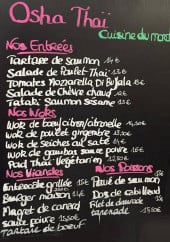 Osha Thaï
Cuisine du mond
Nos Entrées
Tartare de Saumon 14€
Salade de Poulet Thaï 13€
Tomates Mozzarella Di Bufala
Salade de Chèvre chaud
Tataki Saumon sésame 15€
Nos Woks
Wok de boeuf citron/citronelle
Wok de poulet gingembre
Wok de seiches au saté
Wok de gambas sauce poivre
Pad Thaï Végétarien
Nos Viandes
Entrecôte grillée
Burger maison
Magret de canard
sauce poivre
Tartare de boeuf
Nos Poissons
Pavé de saumon
Dos de cabillaud
Filet de daurade
tapenade